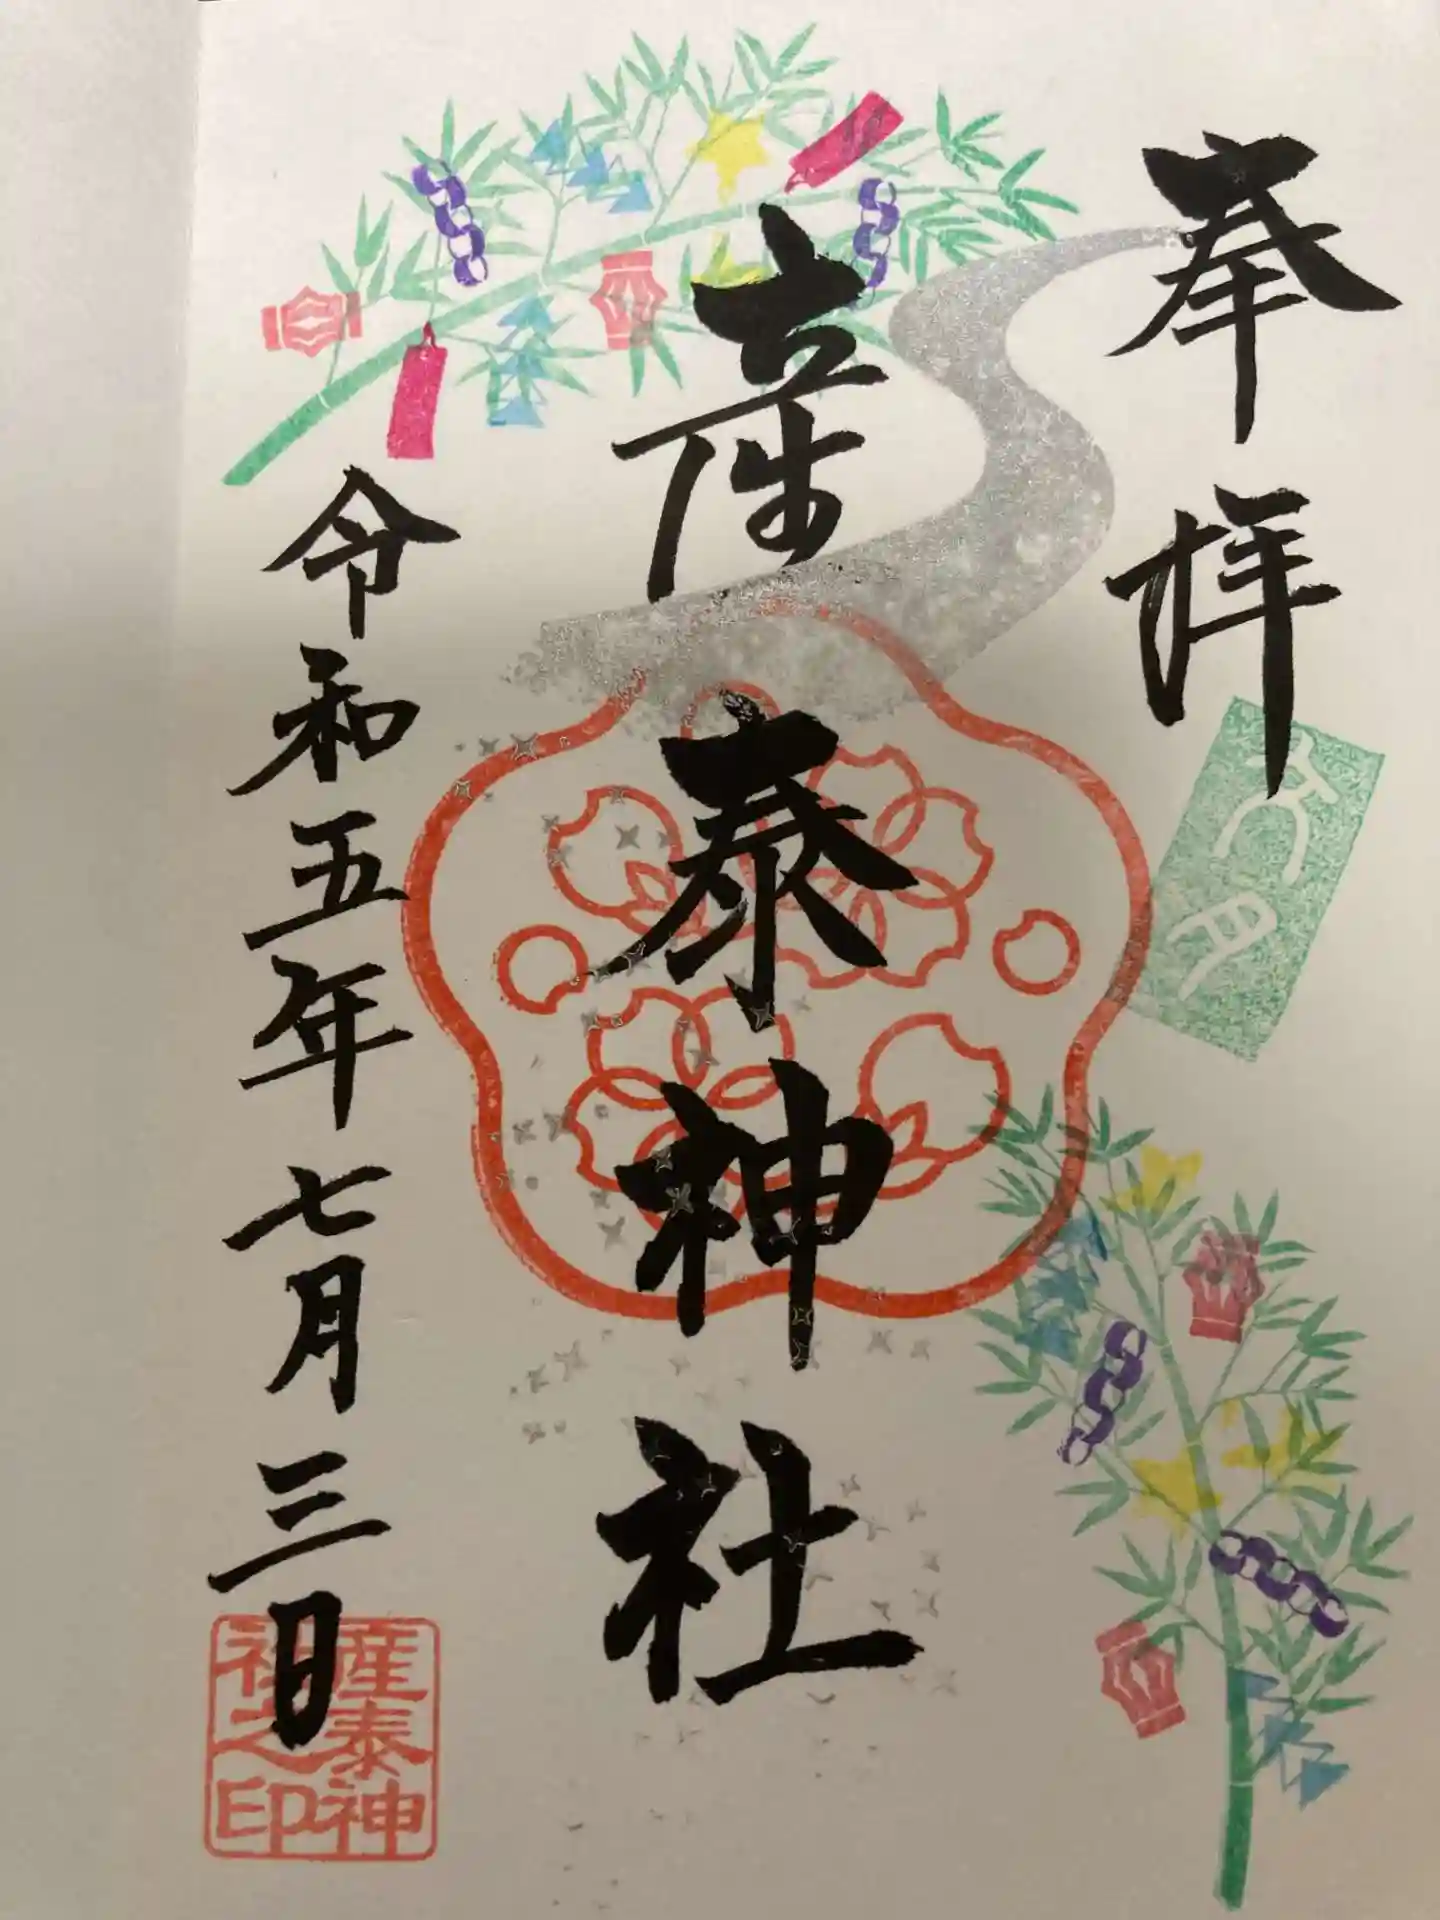 奉拝
文月
産泰神社
令和五年七月三日
産泰神
社之印